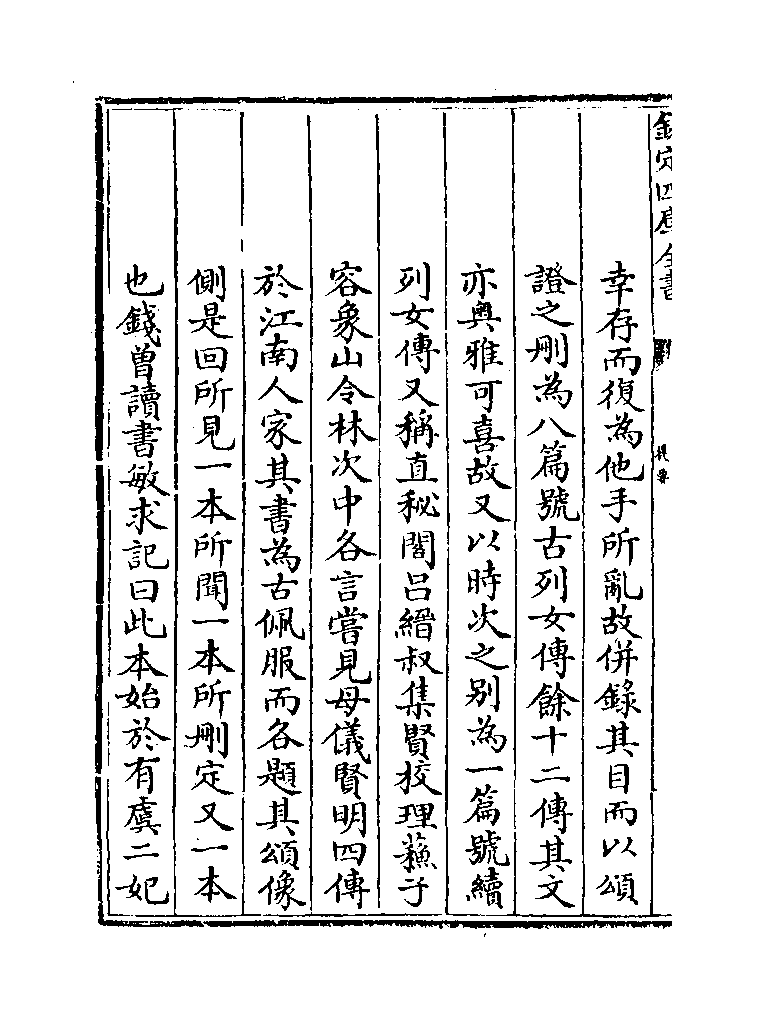 欽定四庫全書
提要
幸存而復為他手所亂故併錄其目而以頌
證之刪為八篇號古列女傳餘十二傳其文
亦奥雅可喜故又以時次之别為一篇號續
列女傳又稱直秘閣吕縉叔集賢校理蘓子
容象山令林次中各言嘗見母儀賢明四傳
於江南人家其書為古佩服而各題其頌像
側是回所見一本所聞一本所刪定又一本
也錢曾讀書敏求記曰此本始於有虞二妃